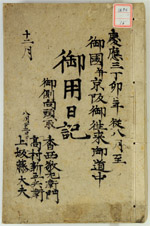 慶應三丁卯年従八月至
十二月
御國并京阪御往来御道中
御用日記
御側尚頭取
香西歡左衛門
高村新左衛門
上坂藤大夫